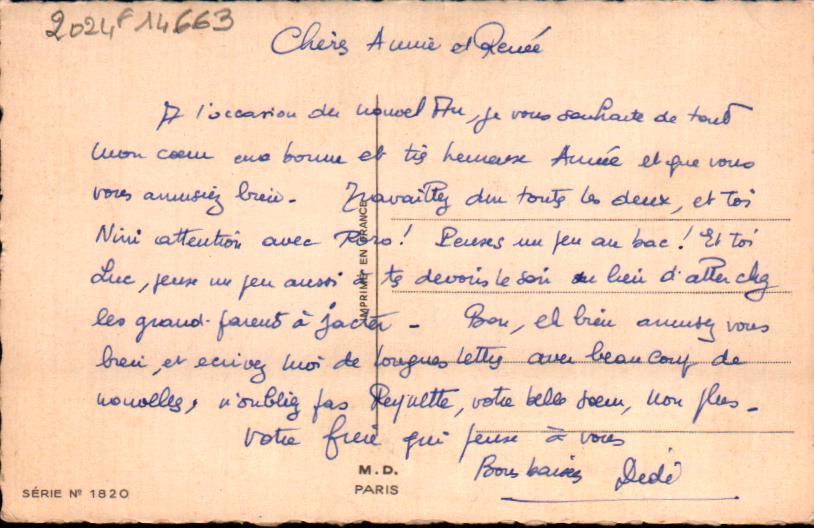 2024F14663
Chères Annie et Renée
A l'occasion du nouvel An, je vous souhaite de tout
mon cœur une bonne et très heureuse Année et que vous
vous amusiez bien. Travaillez dur toute les deux, et toi
Nini attention avec Roro! Penses un peu au bac! Et toi
Luc, pense un peu aussi à tes devoirs le soir au lieu d'aller chez
les grand-parents à jacter. Bon, et bien amusez vous
bien, et ecrivez moi de longues lettres avec beaucoup de
nouvelles, n'oubliez pas Reynette, votre belle sœur, non plus.
votre frère qui pense à vous
Bons baisers Dédé
IMPRIMÉ EN FRANCE
M.D.
PARIS
SÉRIE Nº 1820